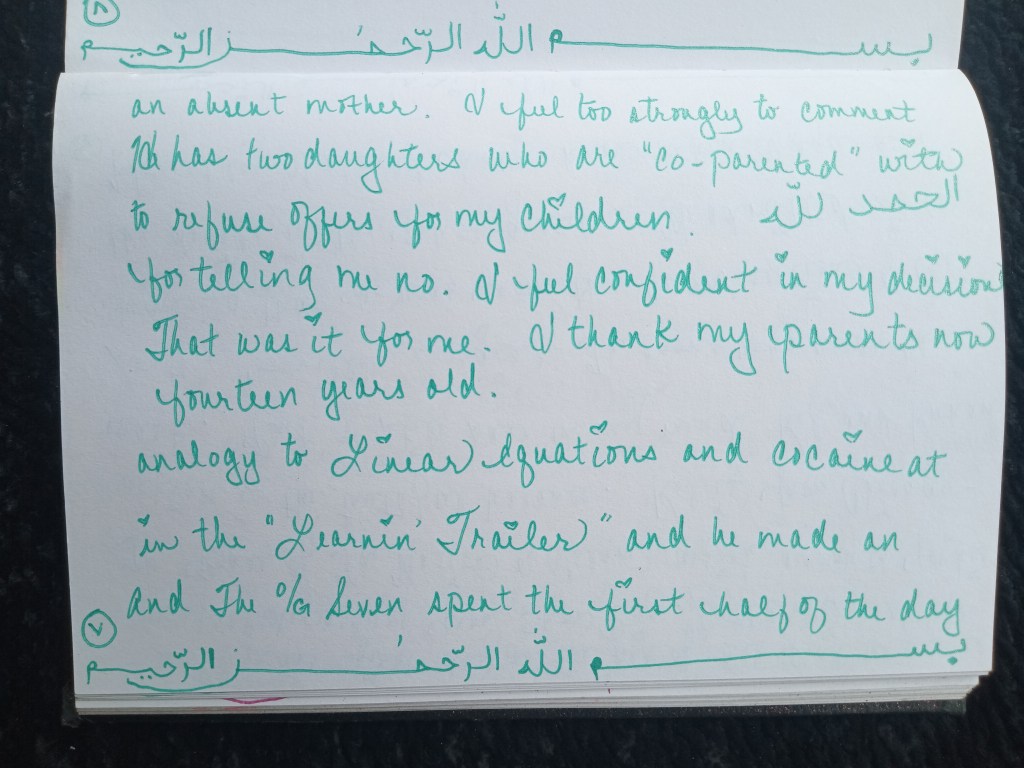 ٨
بسم اللّه الرّحمن الرّحيم
an absent mother. I feel too strongly to comment
has two daughters who are "co-parented" with
to refuse offers for my children. الحمد للّه
for telling me no. I feel confident in my decision
That was it for me. I thank my parents now
fourteen years old.
analogy to Linear Equations and cocaine at
in the "Learnin' Trailer" and he made an
and The O/G Seven spent the first half of the day
٧
بسم اللّه الرّحمن الرّحيم